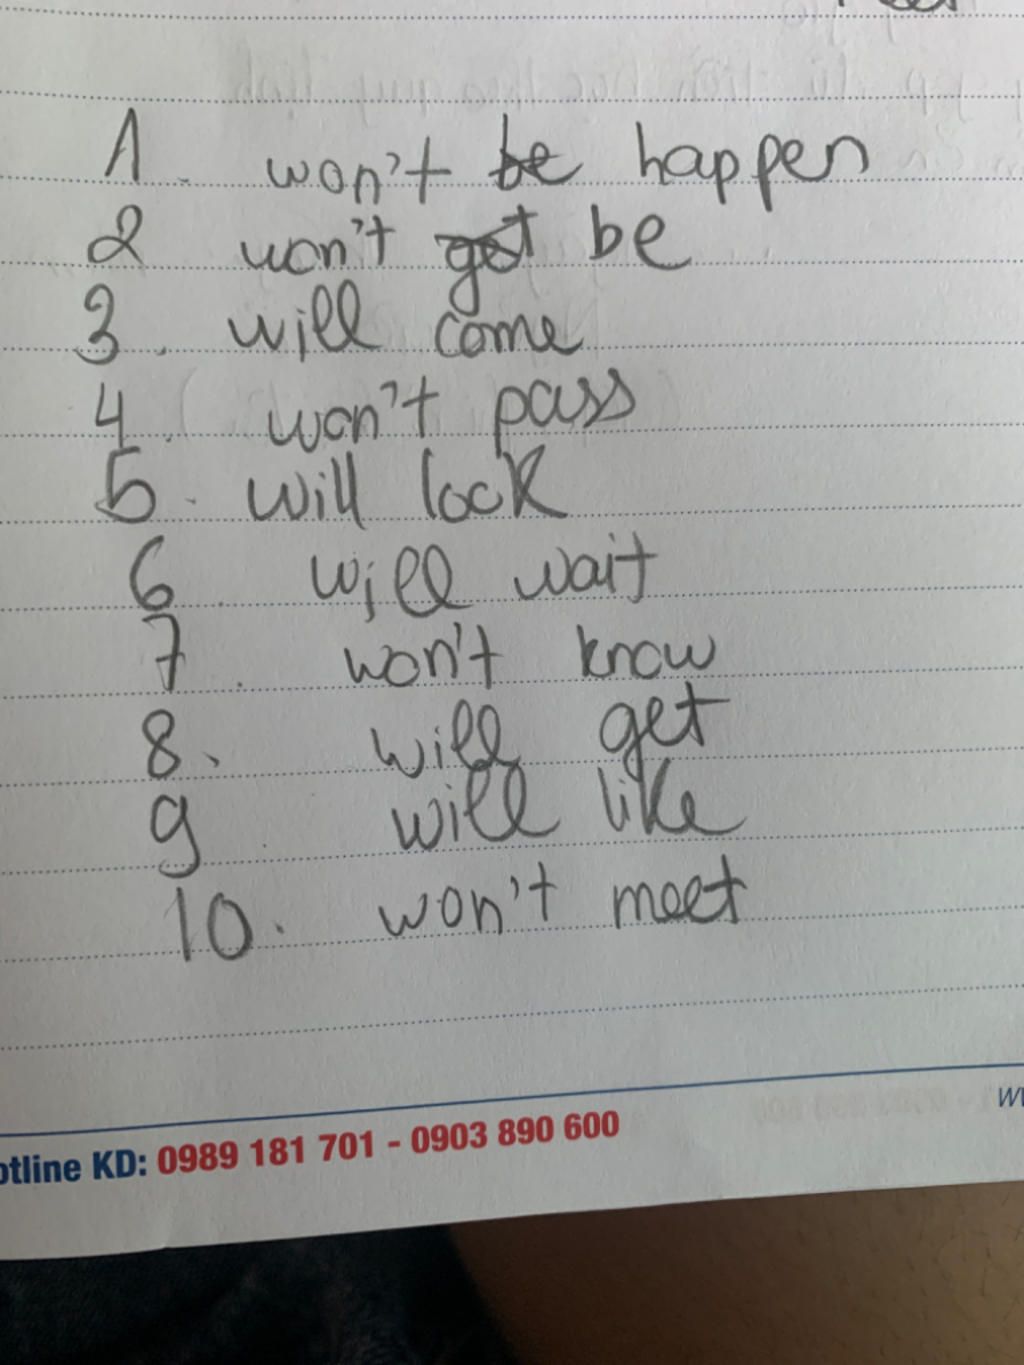 1. won't be happen
2 won't got be
3. will come
4. won't pass
5. will lock
6. will wait
7. won't know
8. will get
9 will like
10. won't meet
otline KD: 0989 181 701 - 0903 890 600